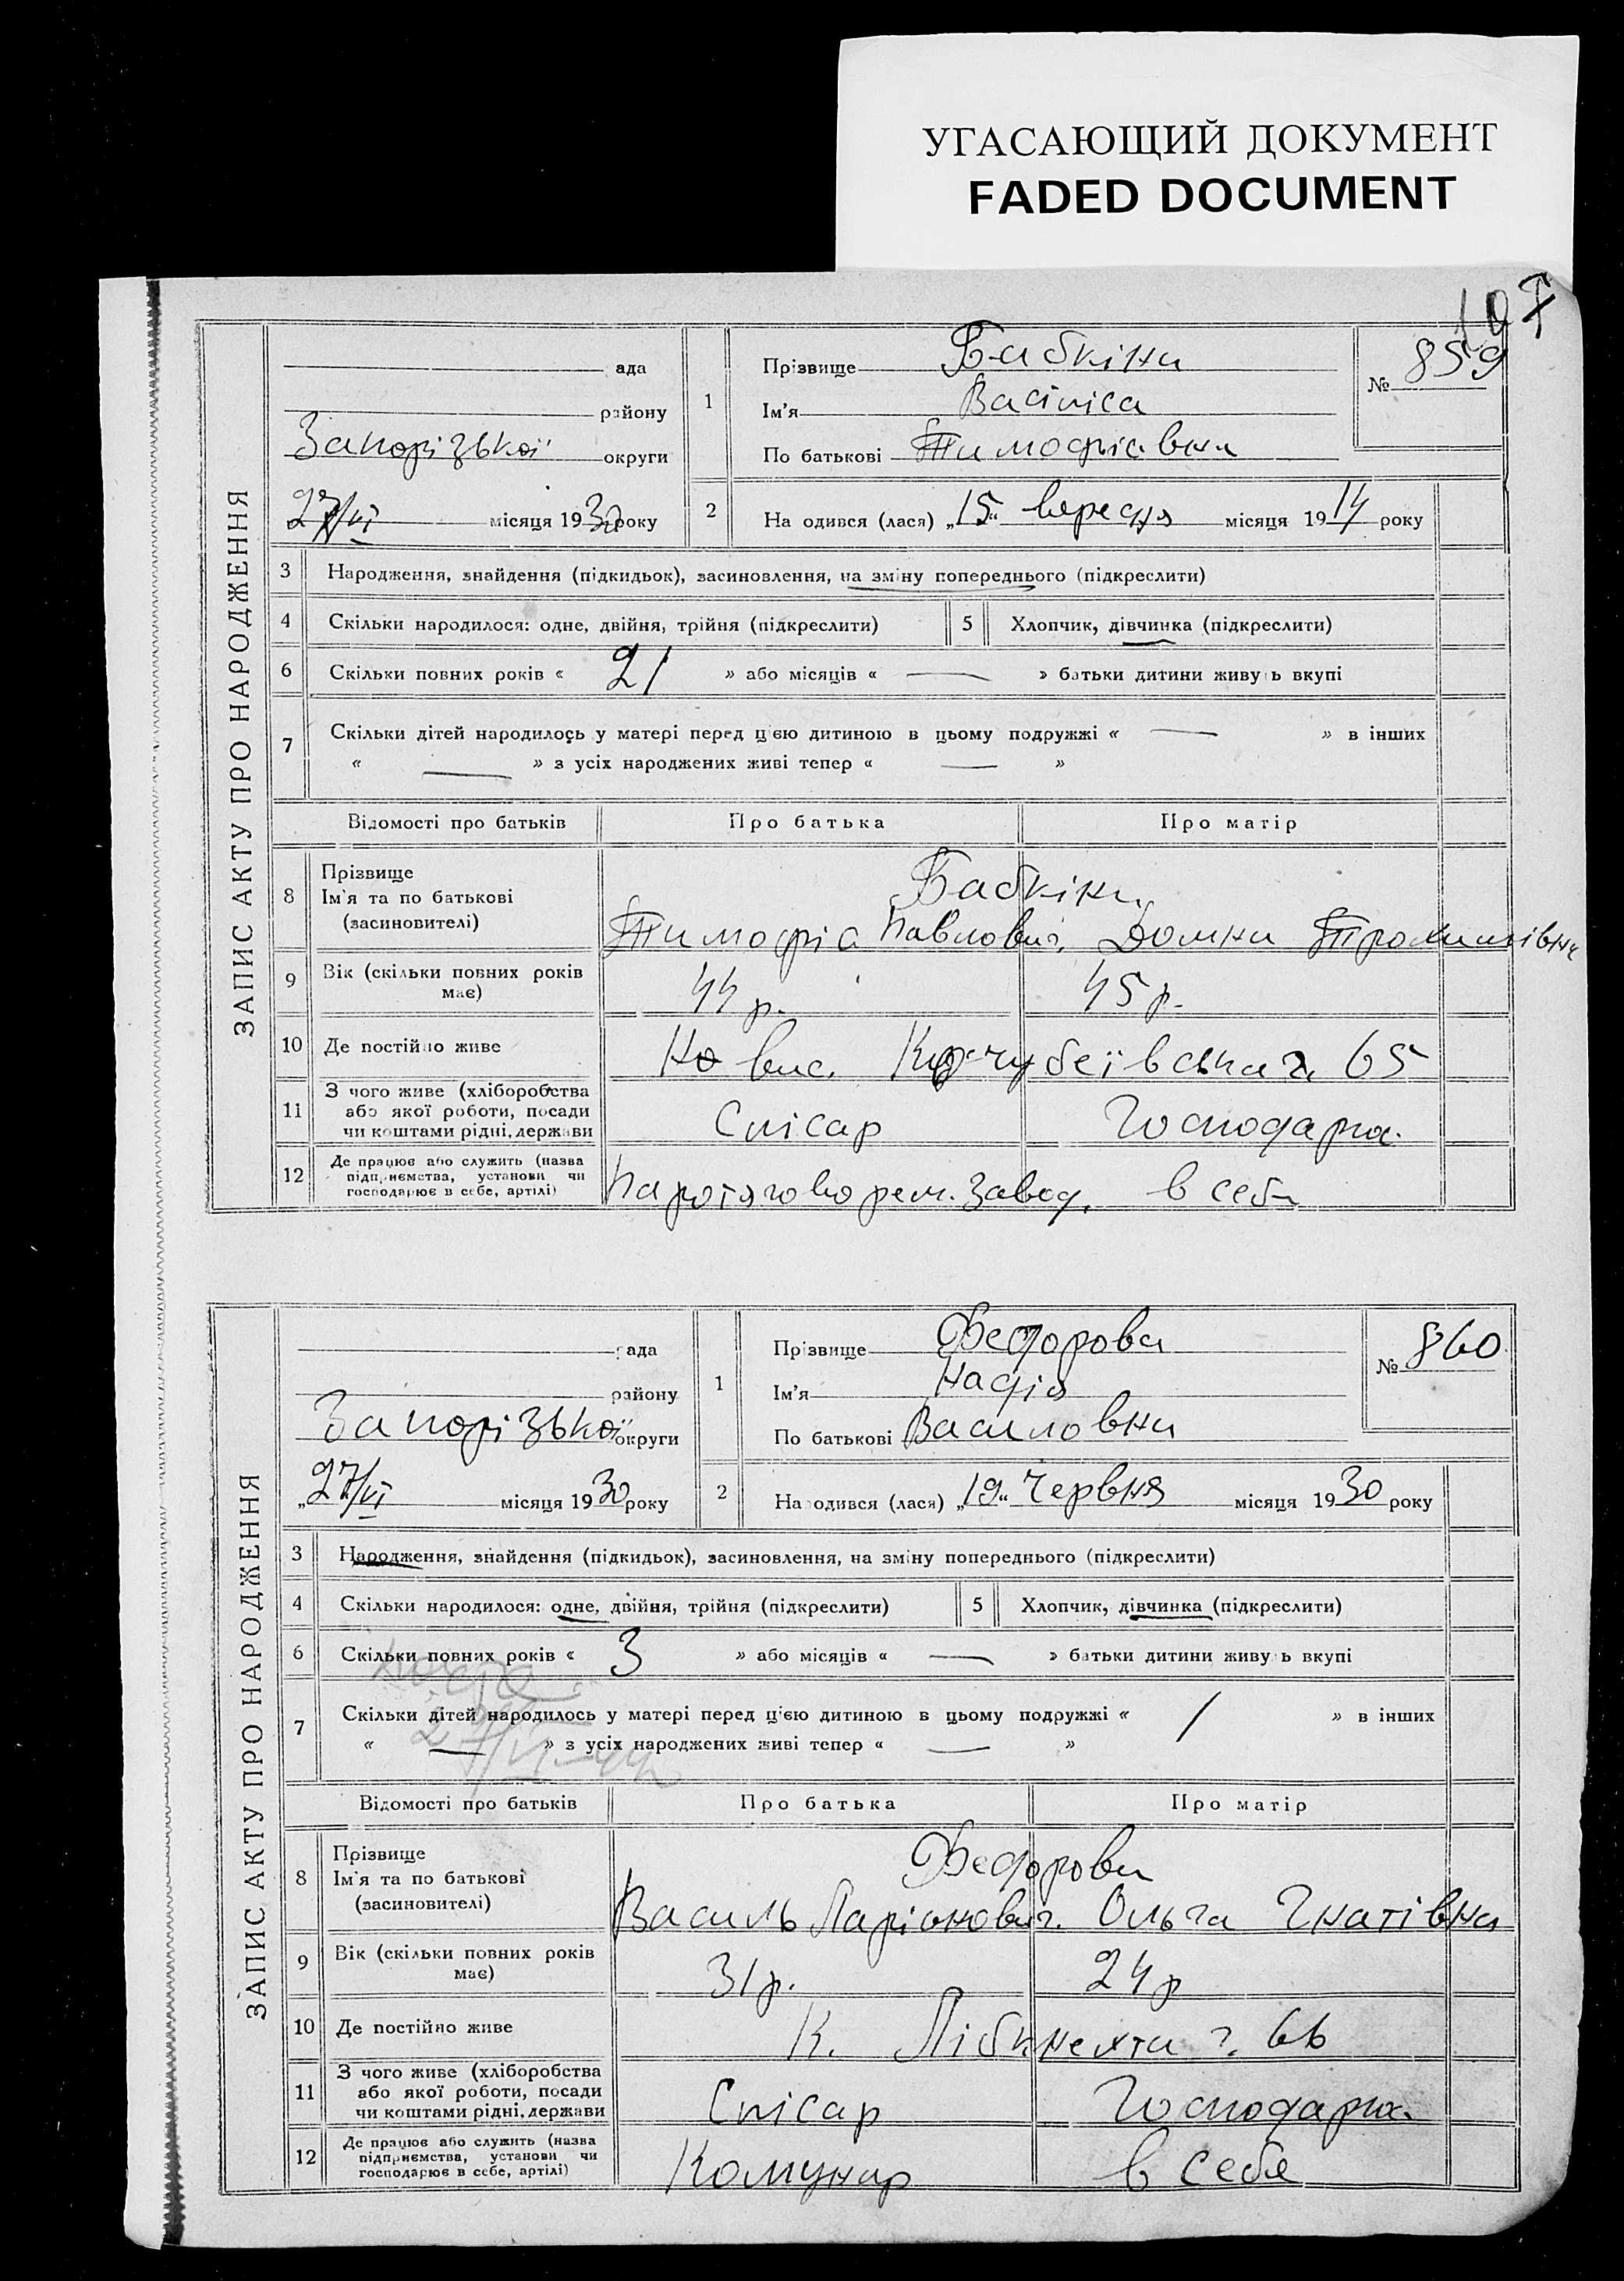 УГАСАЮЩИЙ ДОКУМЕНТ
FADED DOCUMENT
ЗАПИС АКТУ ПРО НАРОДЖЕННЯ
ада
району
Запорізької округи
27/VI місяця 1930 року
1
Прізвище Бабкіна
Ім'я Васіліса
По батькові Тимофієвна
№ 859
2
На одився (лася) „15“ вересня місяця 1914 року
3 Народження, знайдення (підкидьок), засиновлення, на зміну попереднього (підкреслити)
4 Скільки народилося: одне, двійня, трійня (підкреслити) 5 Хлопчик, дівчинка (підкреслити)
6 Скільки повних років « 21 » або місяців « — » батьки дитини живу ь вкупі
7 Скільки дітей народилось у матері перед цією дитиною в цьому подружжі « — » в інших
« — » з усіх народжених живі тепер « — »
Відомості про батьків Про батька Про матір
8 Прізвище Бабкіни
Ім'я та по батькові
(засиновителі) Тимофіа Павлович. Домна
9 Вік (скільки повних років має) 44 р. 45 р.
10 Де постійно живе Но вис. Кочубеївська ч. 65
11 З чого живе (хліборобства
або якої роботи, посади
чи коштами рідні, держави Слісар Господарка.
12 Де працює або служить (назва
підприємства, установи чи
господарює в себе, артілі) Паротягово рем. завод. в себе
ЗАПИС АКТУ ПРО НАРОДЖЕННЯ
рада
району
Запорізької округи
„27/VI місяця 1930 року
1
Прізвище Федорова
Ім'я Надія
По батькові Василовна
№ 860
2
На одився (лася) „19“ Червня місяця 1930 року
3 Народження, знайдення (підкидьок), засиновлення, на зміну попереднього (підкреслити)
4 Скільки народилося: одне, двійня, трійня (підкреслити) 5 Хлопчик, дівчинка (підкреслити)
6 Скільки повних років « 3 » або місяців « — » батьки дитини живу ь вкупі
7 Скільки дітей народилось у матері перед цією дитиною в цьому подружжі « 1 » в інших
« — » з усіх народжених живі тепер « — »
Відомості про батьків Про батька Про матір
8 Прізвище Федорови
Ім'я та по батькові
(засиновителі) Василь Ларіонович. Ольга Гнатівна
9 Вік (скільки повних років має) 31 р. 24 р
10 Де постійно живе К. Лібкнехта ч. 66
11 З чого живе (хліборобства
або якої роботи, посади
чи коштами рідні, держави Слісар Господарка.
12 Де працює або служить (назва
підприємства, установи чи
господарює в себе, артілі) Комунар в себе